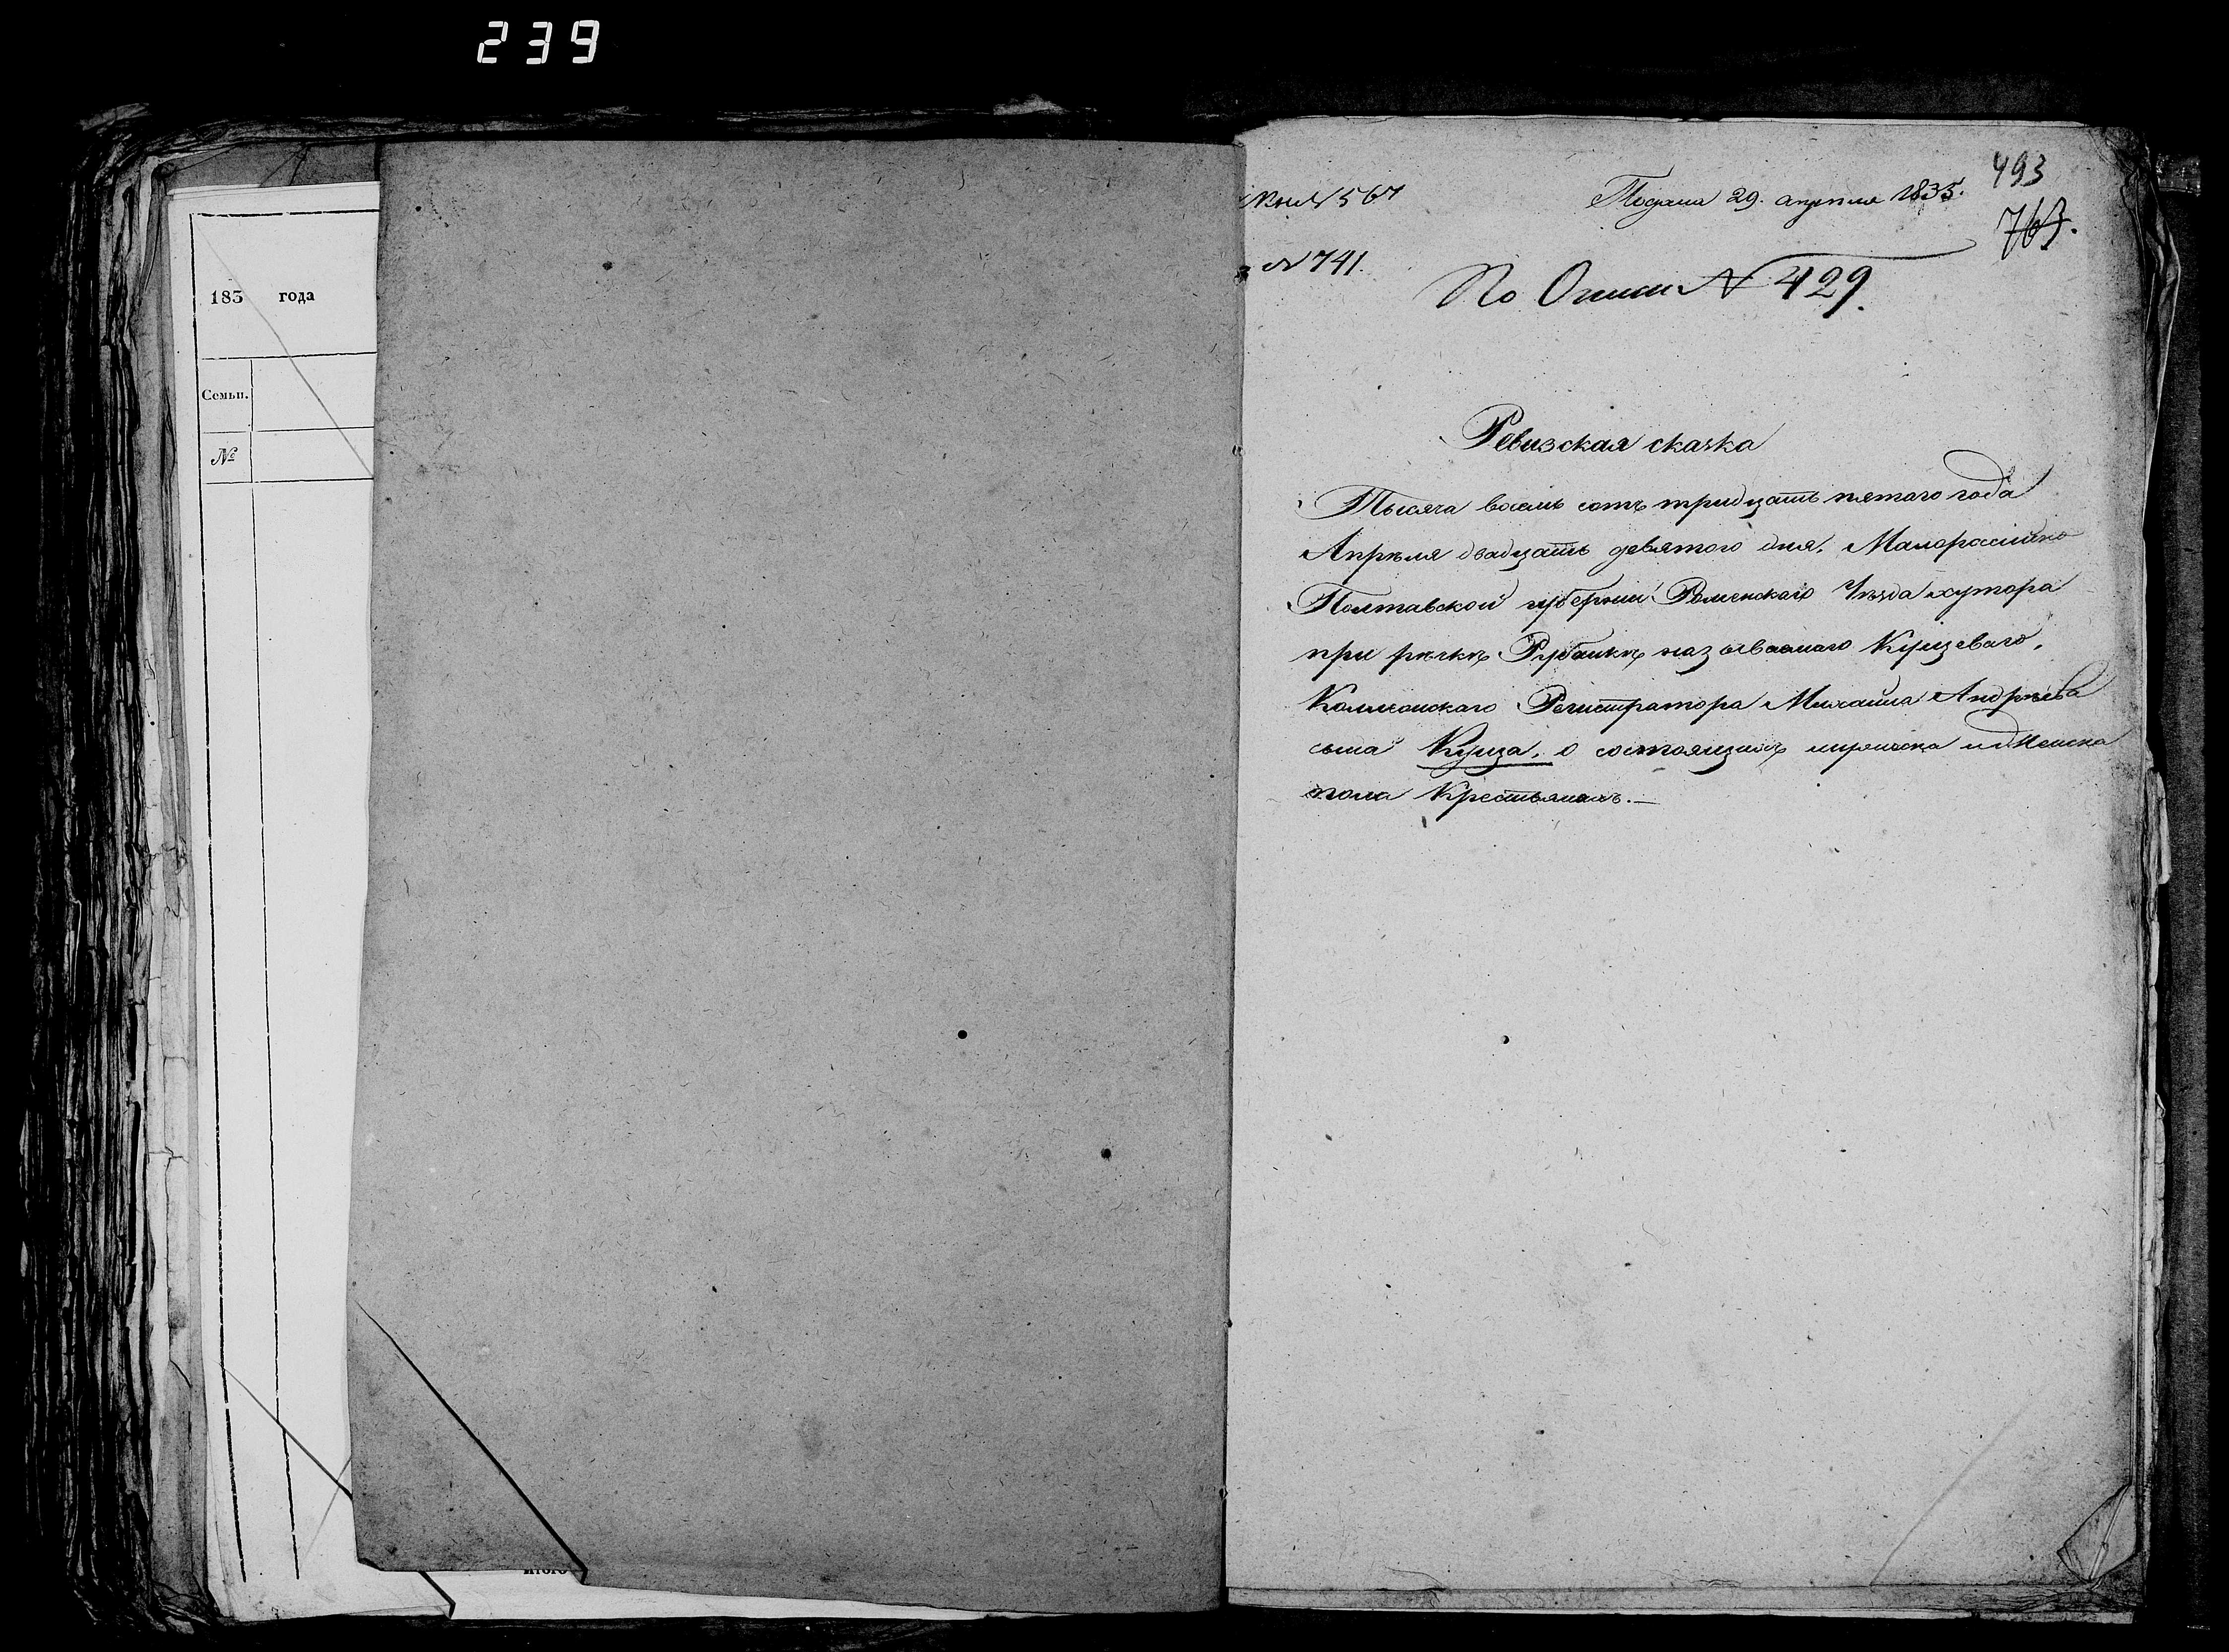 239
183 года
Семьи.
№
итого
№ 567
Подана 29. апреля 1835.
493
763.
№ 741.
По Описи № 429.
Ревизская сказка
Тысяча восемь сотъ тридцать пятаго года
Апрѣля двадцать девятого дня, Малороссійско
Полтавской губерніи Роменскаго Уѣзда хутора
при рѣчкѣ называемаго Куцеваго,
Коллежскаго Регистратора Михаила Андрѣева
сына Куца, о состоящихъ мужеска и женска
пола Крестьянахъ.—